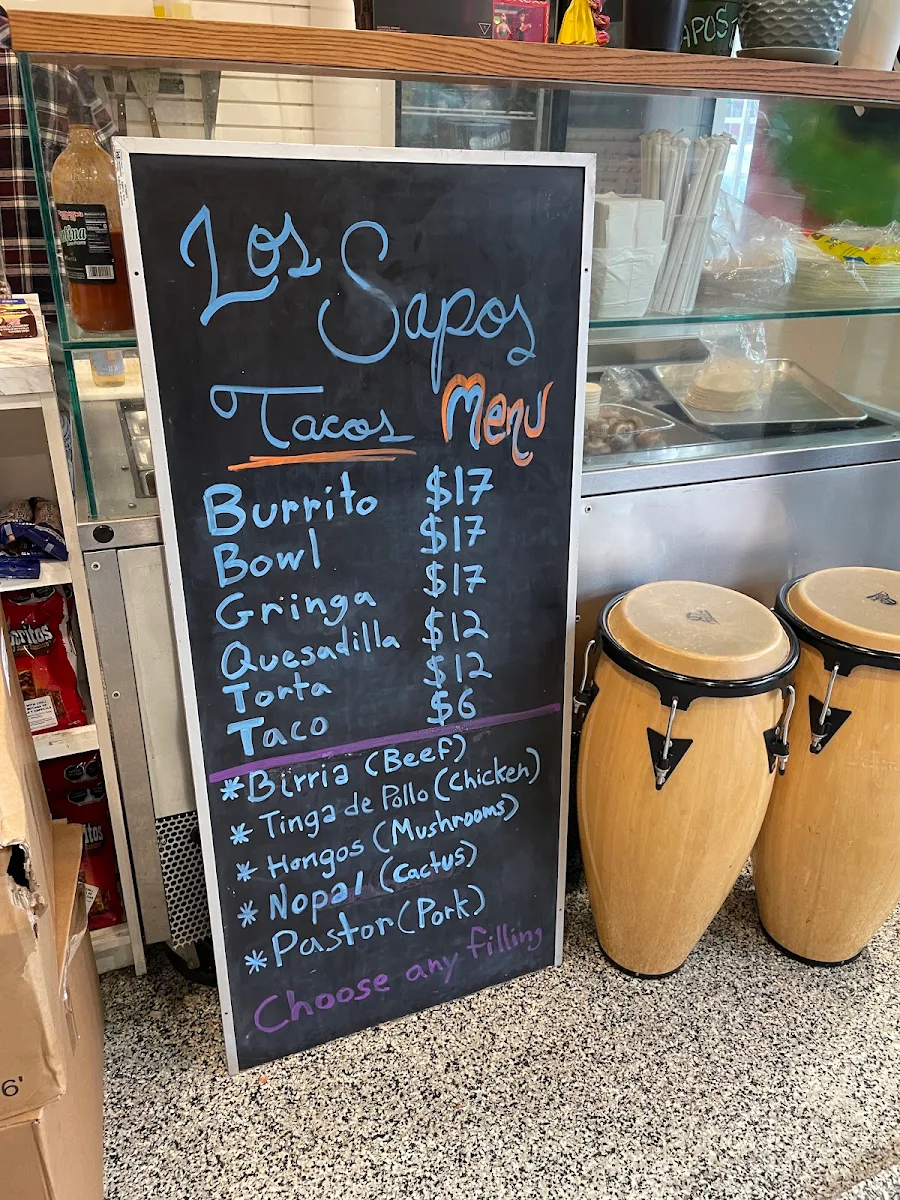 APOS
Los
Sapos
Tacos Menu
Burrito $17
Bowl $17
Gringa $17
Quesadilla $12
Torta $12
Taco $6
*Birria (Beef)
*Tinga de Pollo (Chicken)
*Hongos (Mushrooms)
*Nopal (Cactus)
*Pastor (Pork)
Choose any filling
lina
ritos
itos
6'